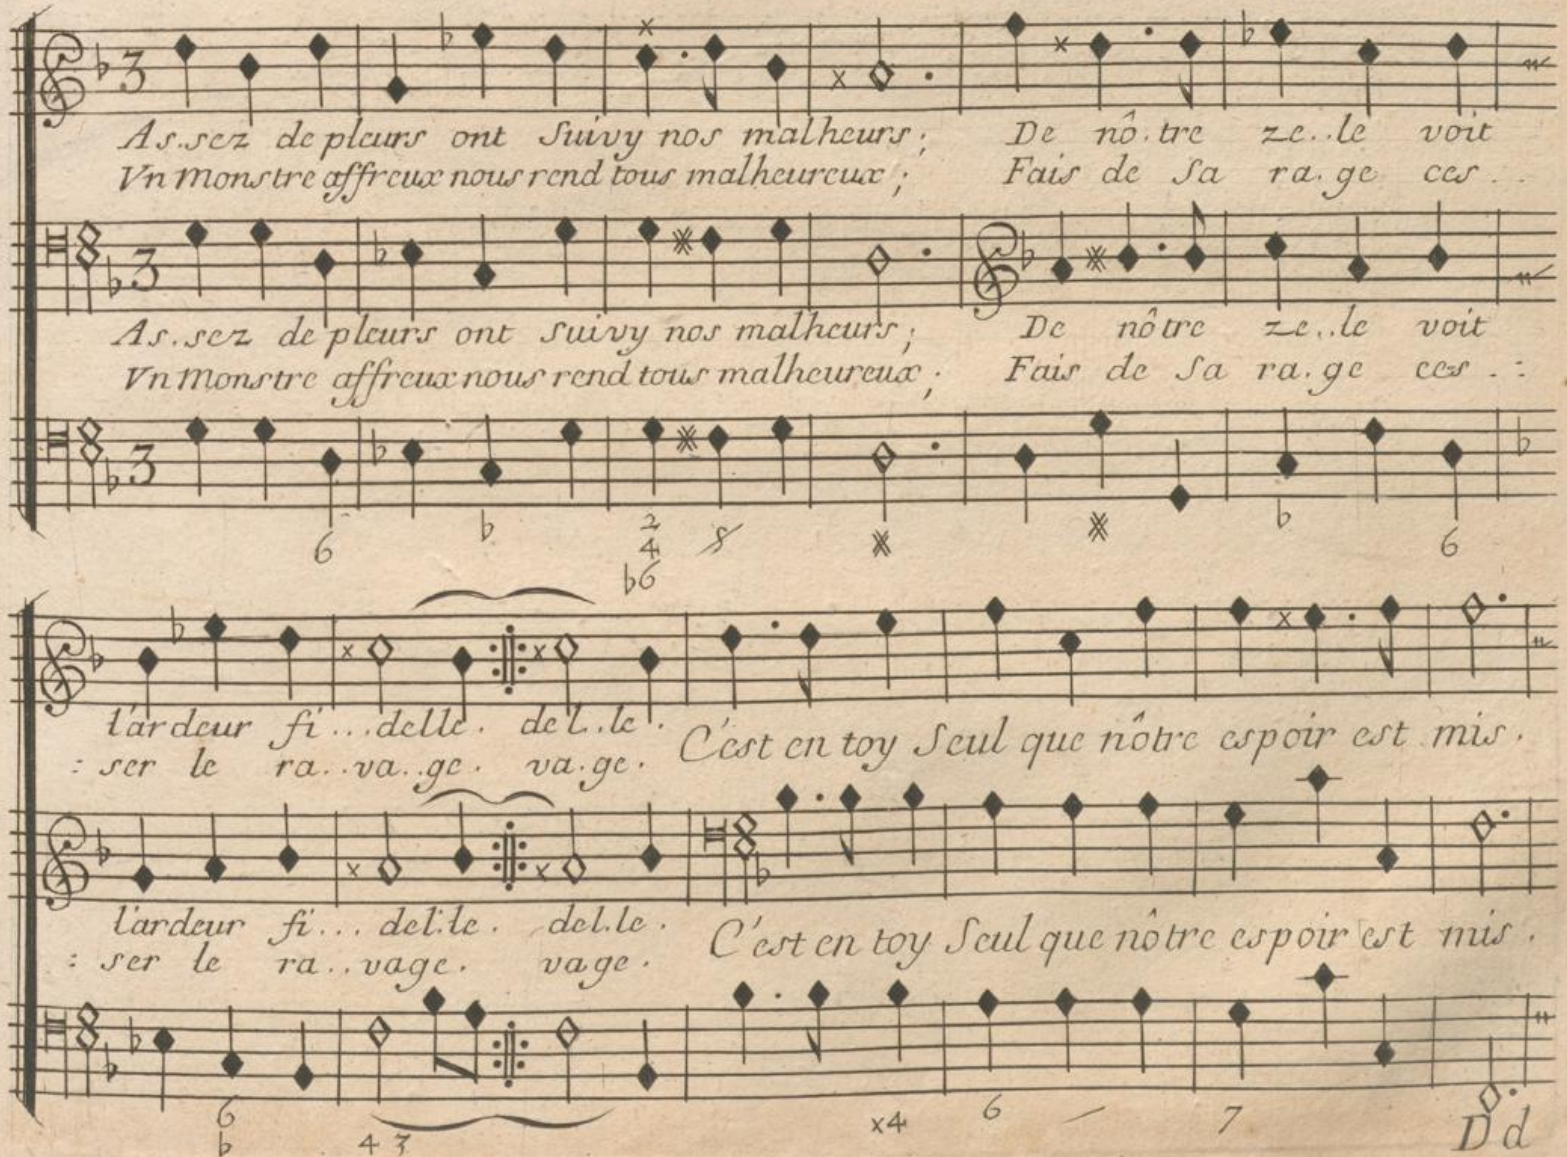 3
As.sez de pleurs ont Suivy nos malheurs; De nô.tre ze..le voit
Vn Monstre affreux nous rend tous malheureux; Fais de Sa ra.ge ces..
3
As.sez de pleurs ont Suivy nos malheurs; De nôtre ze..le voit
Vn Monstre affreux nous rend tous malheureux; Fais de Sa ra.ge ces.:
3
6 ♭ 2 8 ♭ 6
4
♭6
l'ardeur fi...delle. del..le. C'est en toy Seul que nôtre espoir est mis.
: ser le ra..va..ge. va.ge.
l'ardeur fi... del.le. del.le. C'est en toy Seul que nôtre espoir est mis.
: ser le ra..vage. vage.
6 4 3 x4 6 7
♭
D d